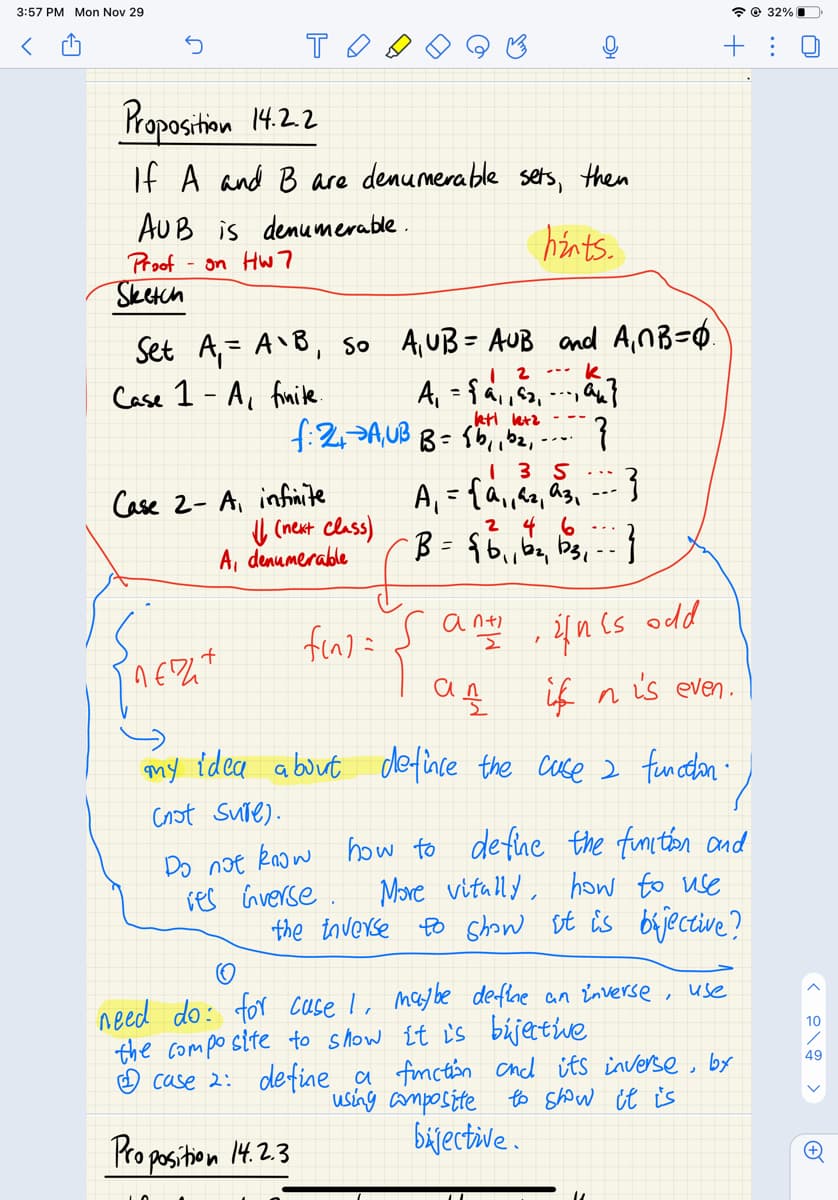 3:57 PM Mon Nov 29
32%
Proposition 14.2.2
If A and B are denumerable sets, then
AUB is denumerable.
hints.
Proof - on HW7
Sketch
Set A₁ = A∖B, so A₁UB = AUB and A₁∩B=Ø.
1 2 --- k
Case 1 - A₁ finite. A₁ = {a₁, a₂, ---, aₖ}
k+1 k+2 ---
f: ℤ₊→A₁UB B = {b₁, b₂, ---- }
1 3 5 ...
Case 2 - A₁ infinite A₁ = {a₁, a₂, a₃, --- }
⇓ (next class) 2 4 6 ...
A₁ denumerable B = {b₁, b₂, b₃, -- }
n∈ℤ⁺ f(n) = { a (n+1)/2 , if n is odd
a n/2 if n is even.
my idea about define the case 2 function.
(not sure).
Do not know how to define the function and
its inverse. More vitally, how to use
the inverse to show it is bijective?
need do: ① for case 1, maybe define an inverse, use
the composite to show it is bijective
② case 2: define a function and its inverse, by
using composite to show it is
bijective.
Proposition 14.2.3
10
/
49